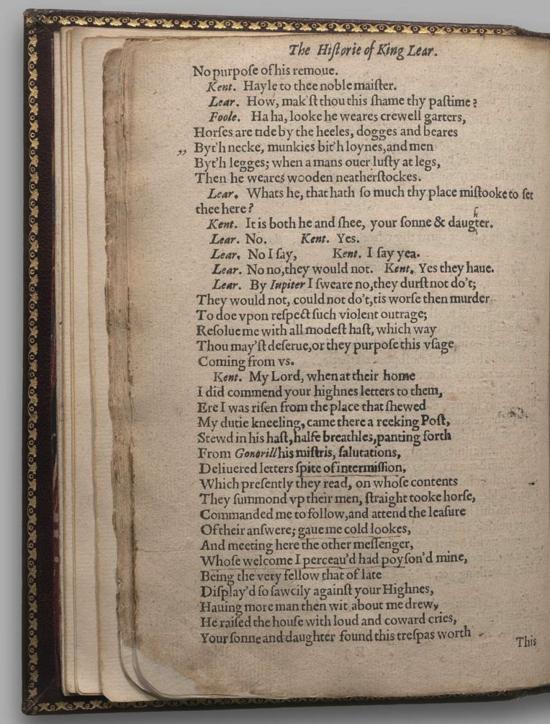 The Hiſtorie of King Lear.
No purpose of his remoue.
Kent. Hayle to thee noble maiſter.
Lear. How, mak'ſt thou this ſhame thy paſtime?
Foole. Ha ha, looke he weares crewell garters,
Horſes are tide by the heeles, dogges and beares
„ Byt'h necke, munkies bit'h loynes, and men
Byt'h legges; when a mans ouer luſty at legs,
Then he weares wooden neatherſtockes.
Lear. Whats he, that hath ſo much thy place miſtooke to ſet
thee here?
Kent. It is both he and ſhee, your ſonne & daugter.
h
Lear. No. Kent. Yes.
Lear. No I ſay, Kent. I ſay yea.
Lear. No no, they would not. Kent. Yes they haue.
Lear. By Iupiter I ſweare no, they durſt not do't;
They would not, could not do't, tis worſe then murder
To doe vpon reſpect ſuch violent outrage;
Reſolue me with all modeſt haſt, which way
Thou may'ſt deſerue, or they purpoſe this vſage
Coming from vs.
Kent. My Lord, when at their home
I did commend your highnes letters to them,
Ere I was riſen from the place that ſhewed
My dutie kneeling, came there a reeking Poſt,
Stewd in his haſt, halfe breathles, panting forth
From Gonorill his miſtris, ſalutations,
Deliuered letters ſpite of intermiſſion,
Which preſently they read, on whoſe contents
They ſummond vp their men, ſtraight tooke horſe,
Commanded me to follow, and attend the leaſure
Of their anſwere; gaue me cold lookes,
And meeting here the other meſſenger,
Whoſe welcome I perceau'd had poyſon'd mine,
Being the very fellow that of late
Diſplay'd ſo ſawcily againſt your Highnes,
Hauing more man then wit about me drew,
He raiſed the houſe with loud and coward cries,
Your ſonne and daughter found this treſpas worth
This